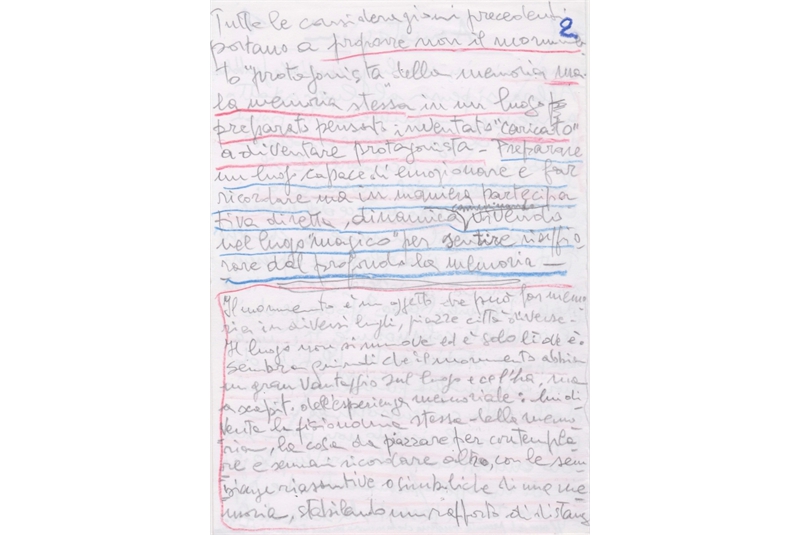 2
Tutte le considerazioni precedenti
portano a proporre non il monumen
to "protagonista" della memoria ma
la memoria stessa in un luogo
preparato pensato inventato "caricato"
a diventare protagonista - Preparare
un luogo capace di emozionare e far
ricordare ma in maniera partecipa
tiva diretta, dinamica, vivendo
camminando
nel luogo "magico" per sentire riaffio-
rare dal profondo la memoria -
Il monumento è un oggetto che può far memo
ria in diversi luoghi, piazze città diverse -
Il luogo non si muove ed è solo lì dov'è.
Sembra quindi che il monumento abbia
un gran vantaggio sul luogo e ce l'ha, ma
a scapito dell'esperienza memoriale:
venta la fisionomia stessa della memo
ria, la cosa da piazzare per contempla
re e semmai ricordare altro, con le sem
bianze riassuntive o simboliche di una me
moria, stabilendo un rapporto di distanz